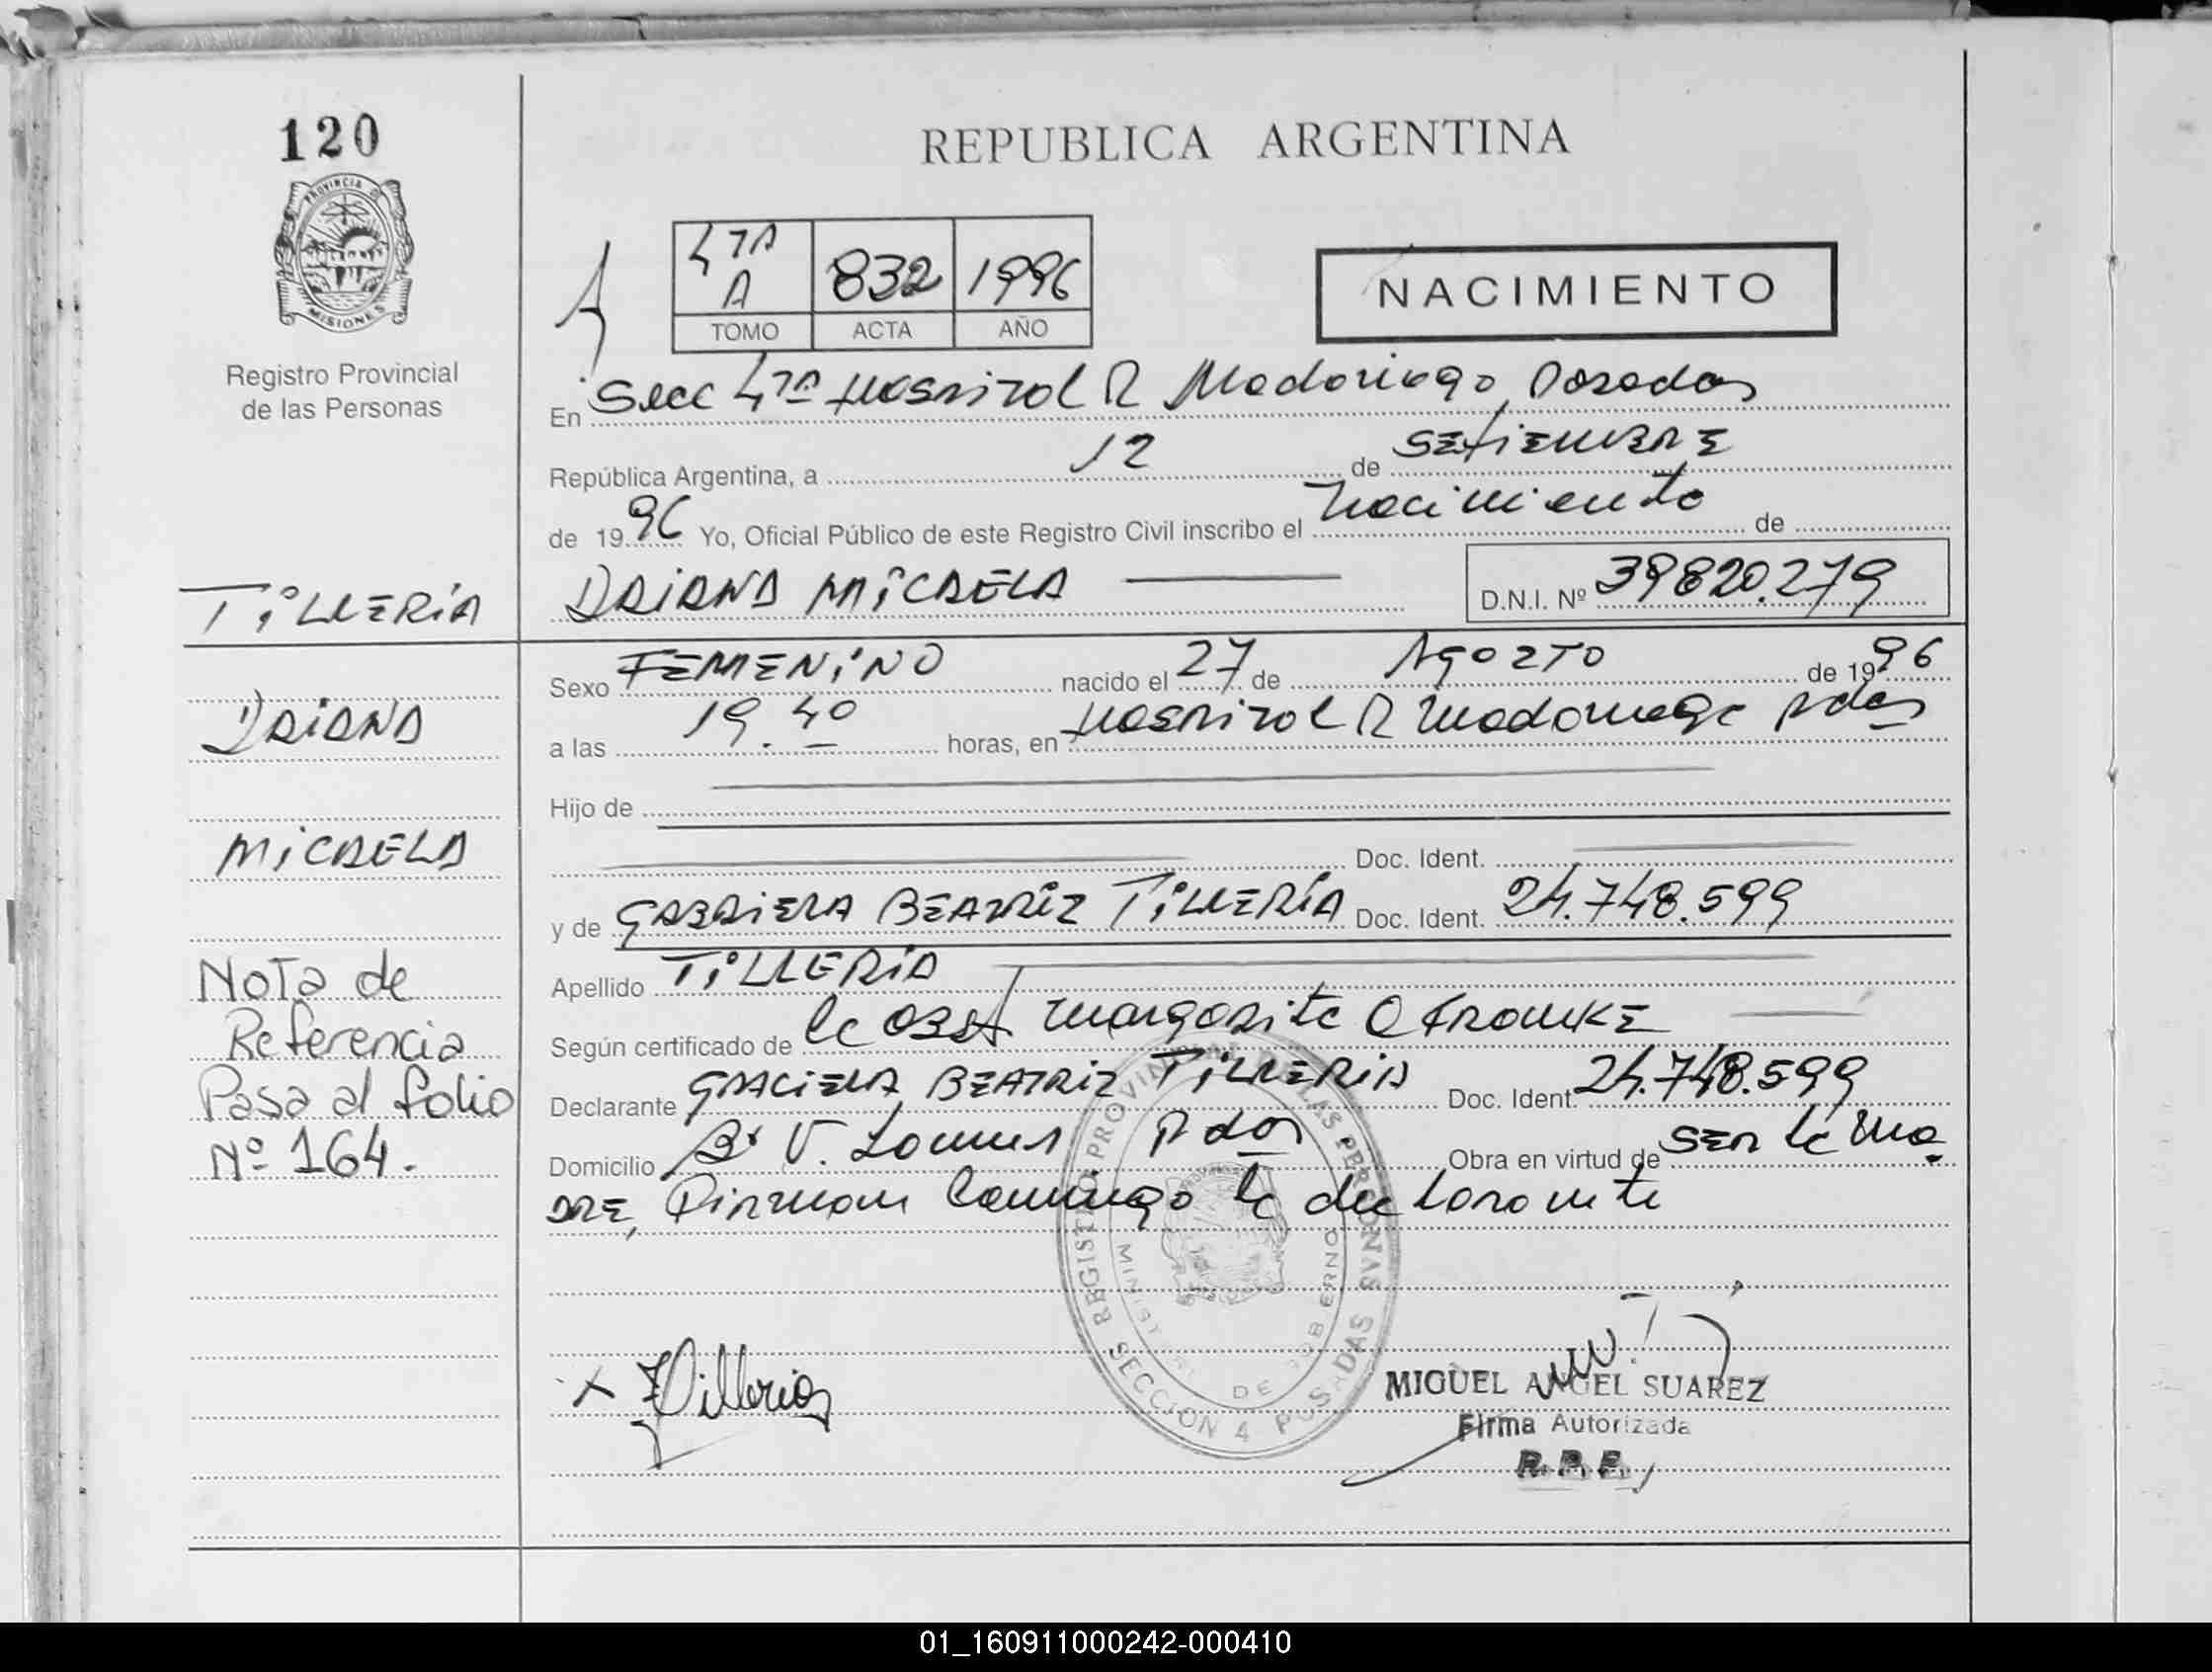 120
PROVINCIA D
MISIONES
Registro Provincial
de las Personas
REPUBLICA ARGENTINA
4TA
A 832 1996
TOMO ACTA AÑO
NACIMIENTO
En Secc 4TA Hospital R Madariaga, Posadas
República Argentina, a 12 de SETIEMBRE
de 1996 Yo, Oficial Público de este Registro Civil inscribo el nacimiento de
TILLERIA
DAIANA MICAELA
D.N.I. Nº 39820.279
Sexo FEMENINO nacido el 27 de AGOZTO de 1996
DAIANA
a las 19.40 horas, en Hospital R Madariaga pdas
Hijo de
MICAELA
Doc. Ident.
y de GABRIELA BEATRIZ TILLERÍA Doc. Ident. 24.748.599
Nota de
Referencia
Pasa al folio
Nº 164.
Apellido TILLERIA
Según certificado de la OBST Margarita O FRANKE
Declarante GRACIELA BEATRIZ TILLERIA Doc. Ident. 24.748.599
Domicilio Bº V. Pdas Obra en virtud de SER la MA
DRE, Firman conmigo la declarante
REGISTRO PROVINCIAL DE LAS PERSONAS
MINISTERIO DE GOBIERNO
SECCION 4 POSADAS
x Tilleria
MIGUEL ANGEL SUAREZ
Firma Autorizada
R. P. P.
01_160911000242-000410